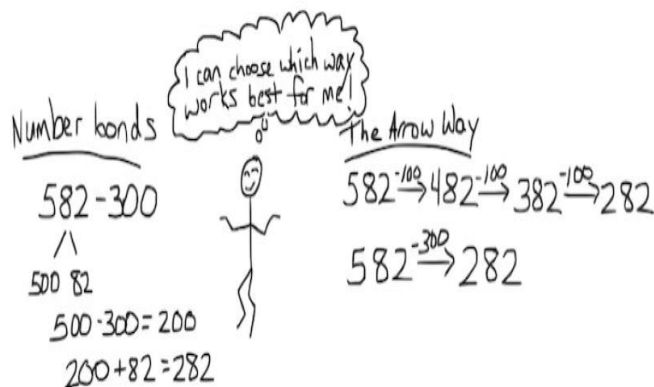 I can choose which way
works best for me!
Number bonds
582-300
500 82
500-300=200
200+82=282
The Arrow Way
582 -100→ 482 -100→ 382 -100→ 282
582 -300→ 282